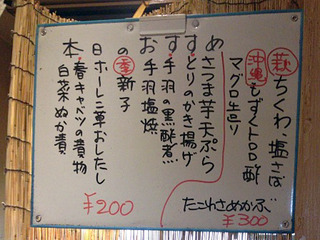 萩ちくわ、塩さば
沖縄もずくトロロ酢
マグロ生のり
たこわさめかぶ
¥300
本日のおすすめ
さつま芋天ぷら
とりのかき揚げ
手羽の黒酢煮
手羽塩焼
季新子
ホーレン草おしたし
春キャベツの漬物
白菜ぬか漬
¥200